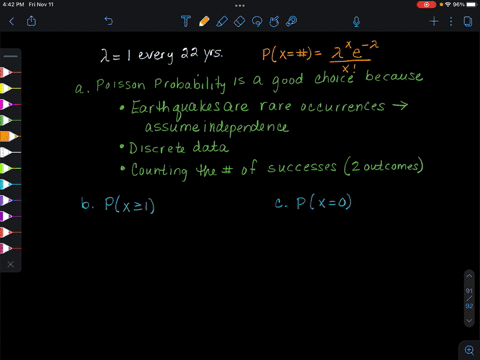 4:42 PM Fri Nov 11
96%
λ = 1 every 22 yrs.
P(X=#) = λ^x e^-λ / x!
a. Poisson Probability is a good choice because
• Earthquakes are rare occurrences → assume independence
• Discrete data
• Counting the # of successes (2 outcomes)
b. P(X≥1)
c. P(X=0)
91
/
92